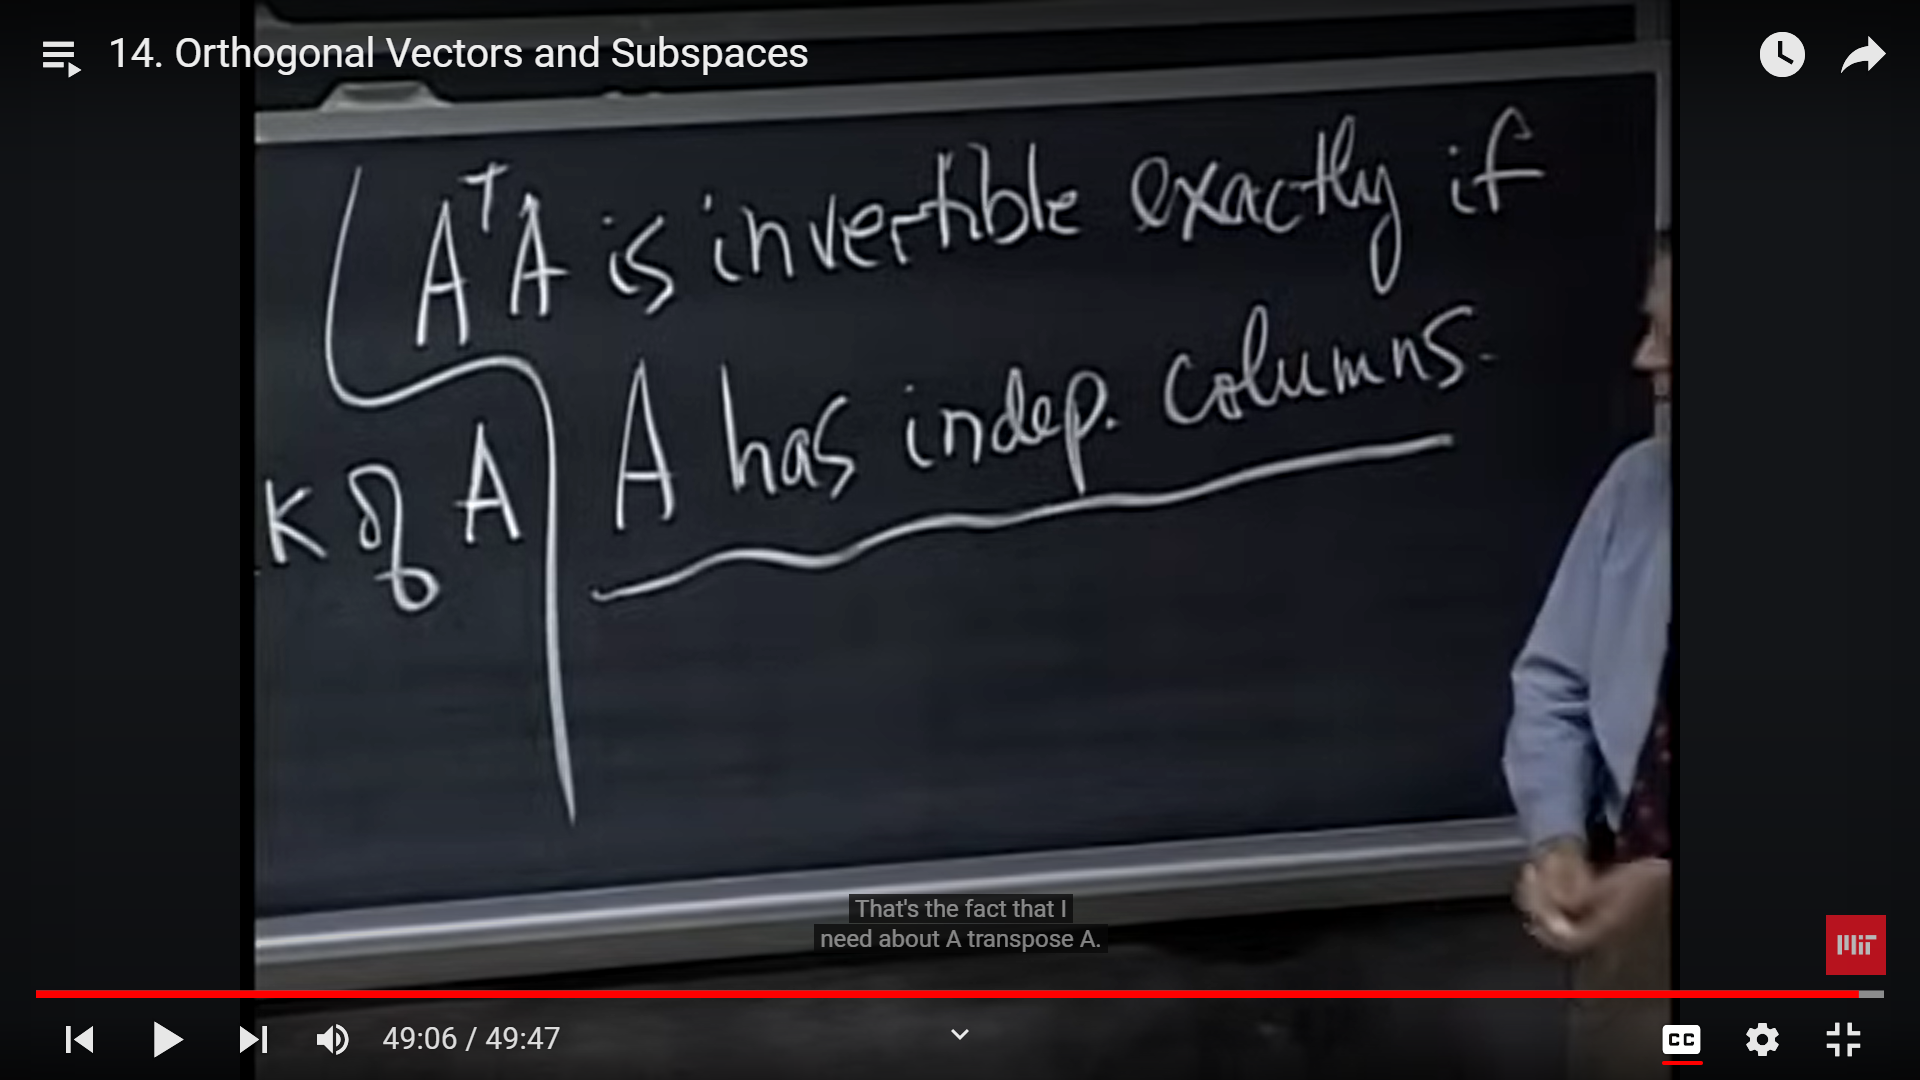 14. Orthogonal Vectors and Subspaces
AᵀA is invertible exactly if
A has indep. columns.
k of A
That's the fact that I
need about A transpose A.
MIT
49:06 / 49:47
CC